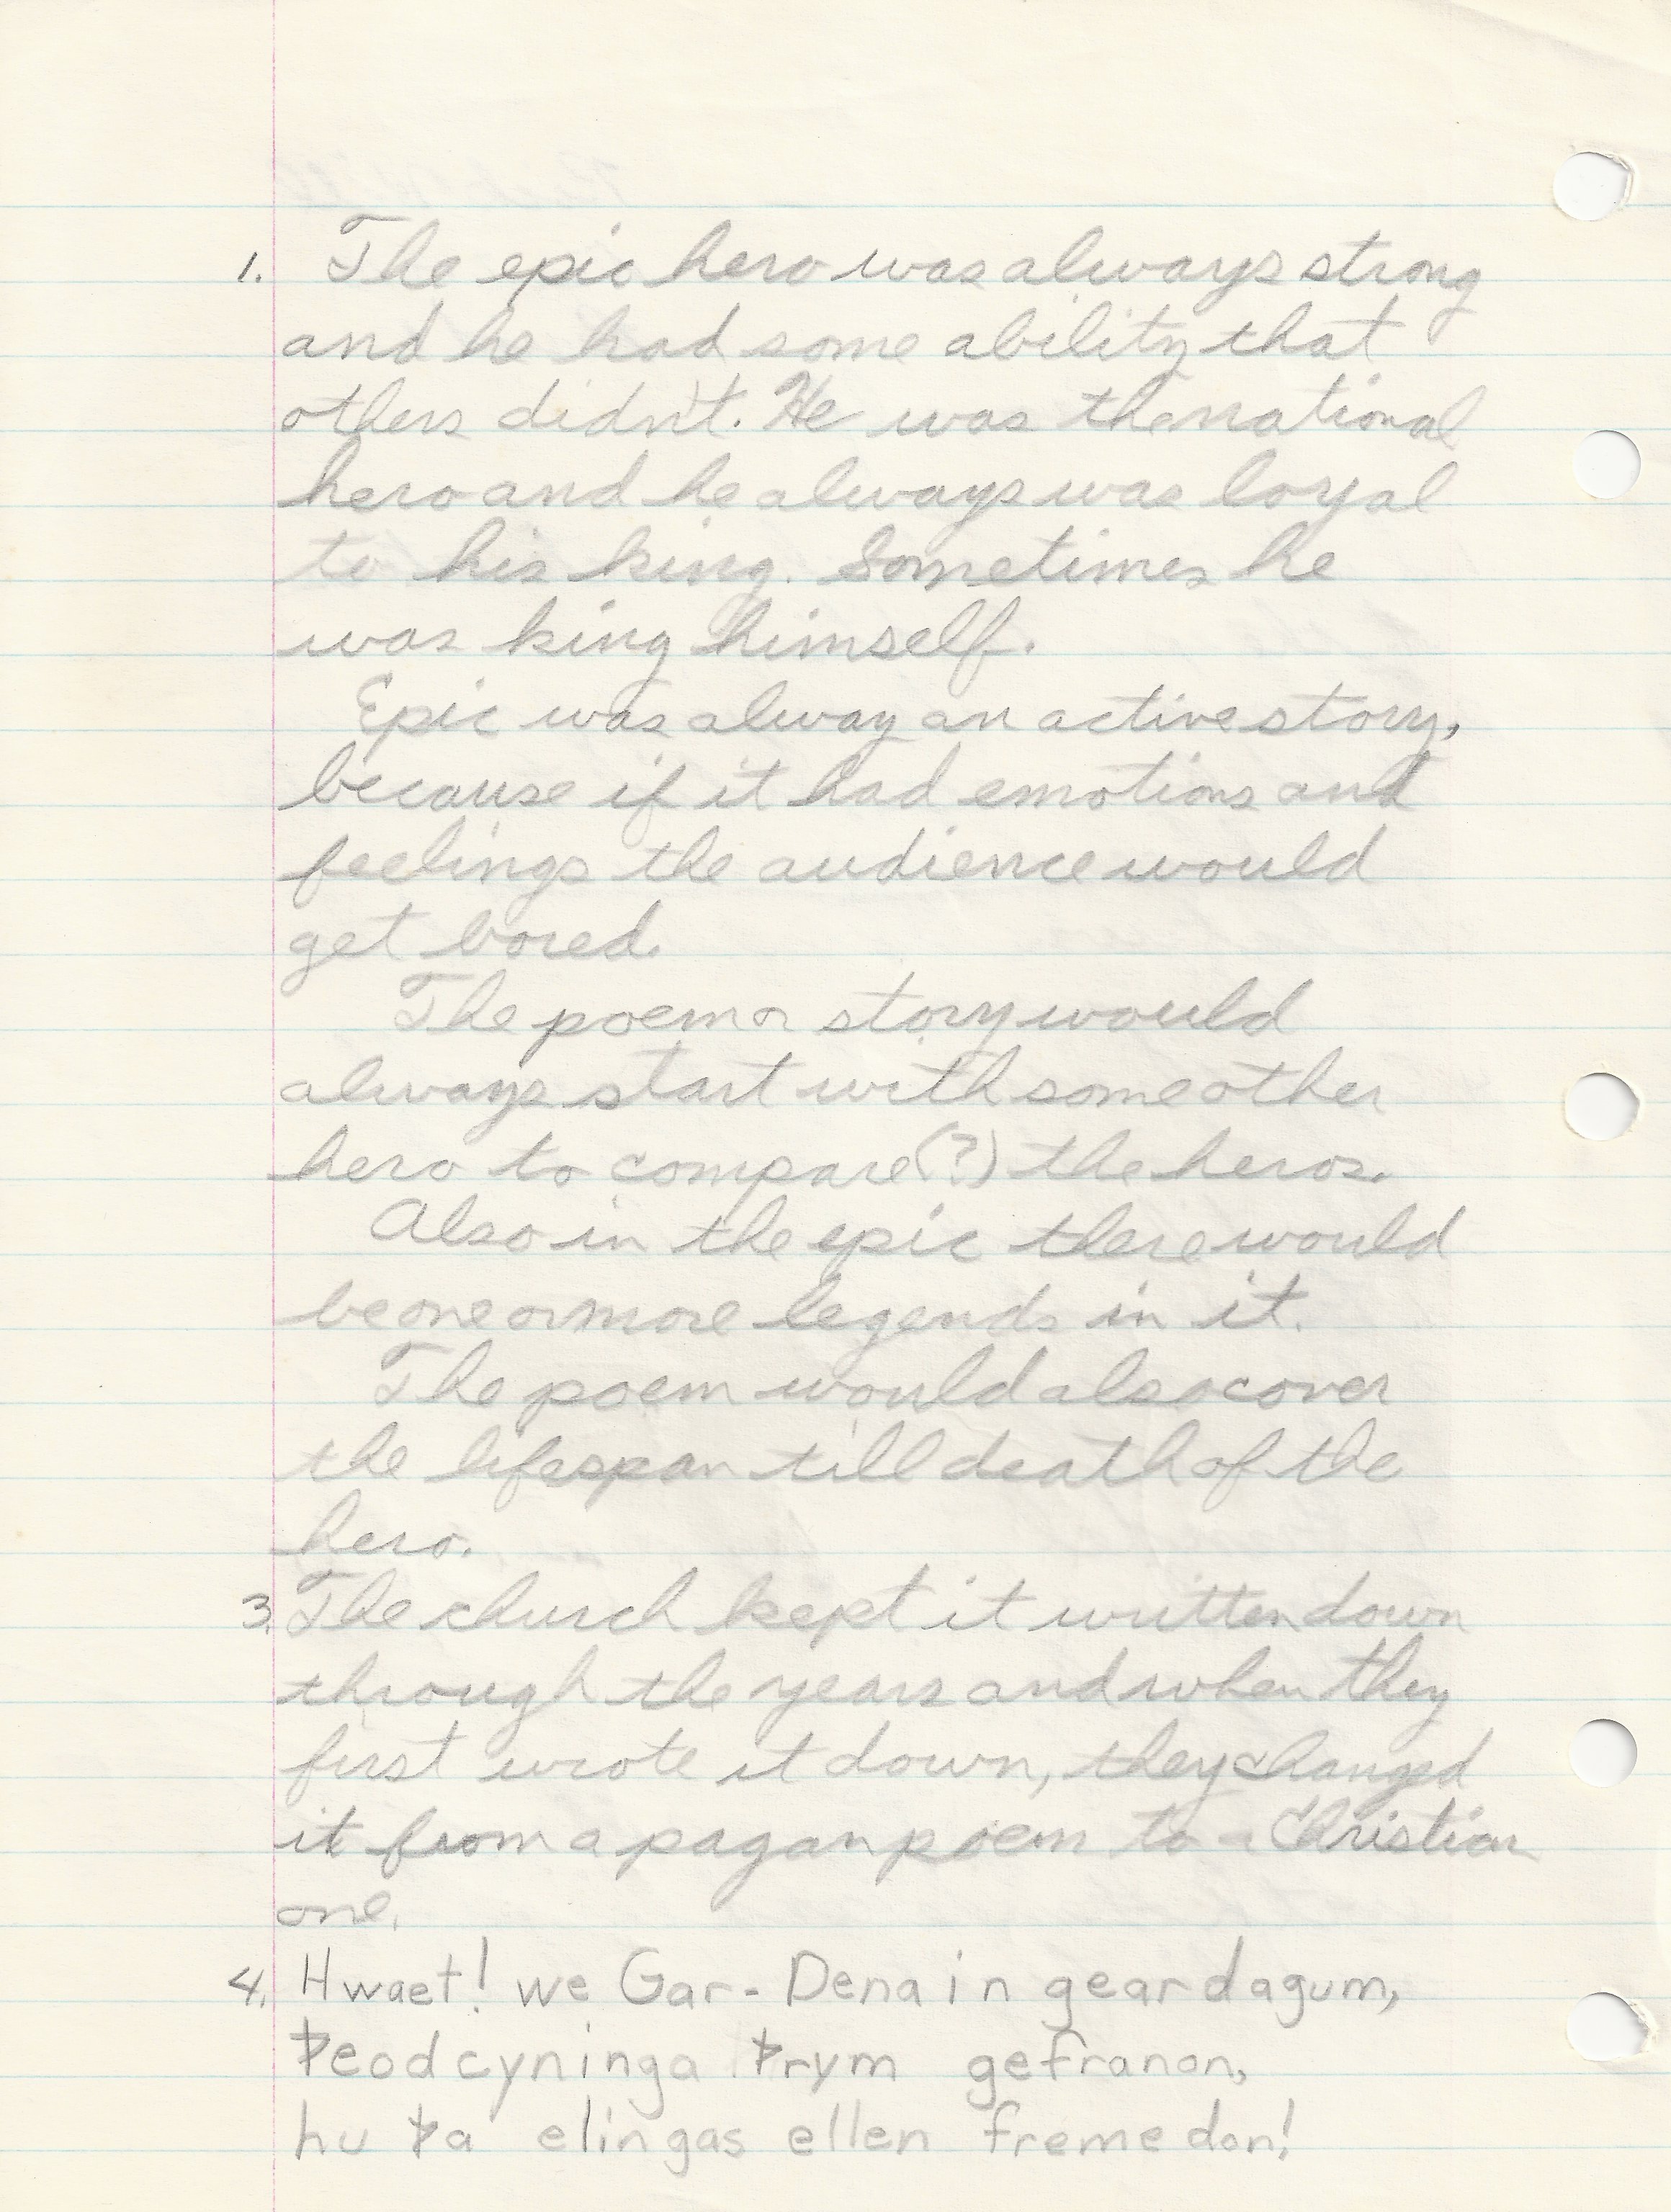 1. The epic hero was always strong
and he had some ability that
others didn't. He was the national
hero and he always was loyal
to his king. Sometimes he
was king himself.
Epic was alway an active story,
because if it had emotions and
feelings the audience would
get bored.
The poem or story would
always start with some other
hero to compare(?) the heros.
Also in the epic there would
be one or more legends in it.
The poem would also cover
the lifespan till death of the
hero.
3. The church kept it written down
through the years and when they
first wrote it down, they changed
it from a pagan poem to a Christian
one.
4. Hwaet! we Gar-Dena in geardagum,
Þeodcyninga Þrym gefranon,
hu Þa elingas ellen fremedon!